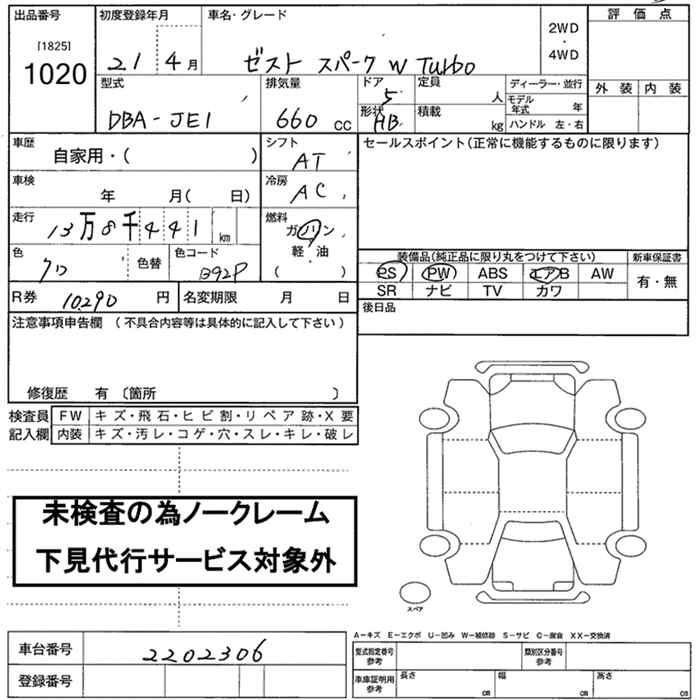 出品番号 初度登録年月 車名・グレード 評価点
[1825] 1020 21 4月 ゼスト スパーク W Turbo 2WD・4WD
型式 排気量 ドア 定員 ディーラー・並行 外装 内装
DBA-JE1 660 cc 5 人 モデル年式 年
形状 HB 積載 kg ハンドル 左・右
車歴 シフト セールスポイント(正常に機能するものに限ります)
自家用・( ) AT
車検 冷房
年 月( 日) AC
走行 燃料
13万8千441 km ガソリン
軽・油
( )
色 色替 色コード 装備品(純正品に限り丸をつけて下さい) 新車保証書
クロ B92P PS PW ABS エアB AW 有・無
R券 10,290 円 名変期限 月 日 SR ナビ TV カワ
後日品
注意事項申告欄 (不具合内容等は具体的に記入して下さい)
修復歴 有 〔箇所 〕
検査員 FW キズ・飛石・ヒビ割・リペア跡・X要
記入欄 内装 キズ・汚レ・コゲ・穴・スレ・キレ・破レ
未検査の為ノークレーム
下見代行サービス対象外
スペア
A-キズ E-エクボ U-凹み W-補修跡 S-サビ C-腐食 XX-交換済
車台番号 2202306 型式指定番号 参考 類別区分番号 参考
登録番号 車庫証明用 参考 長さ cm 幅 cm 高さ cm